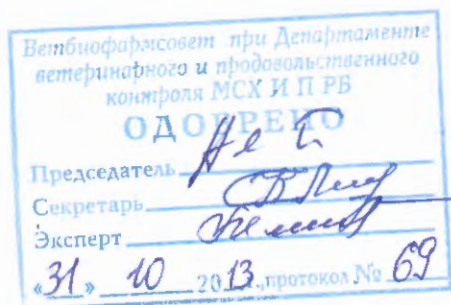 Ветбиофармсовет при Департаменте
ветеринарного и продовольственного
контроля МСХ И П РБ
ОДОБРЕНО
Председатель
Секретарь
Эксперт
«31» 10 2013., протокол № 69